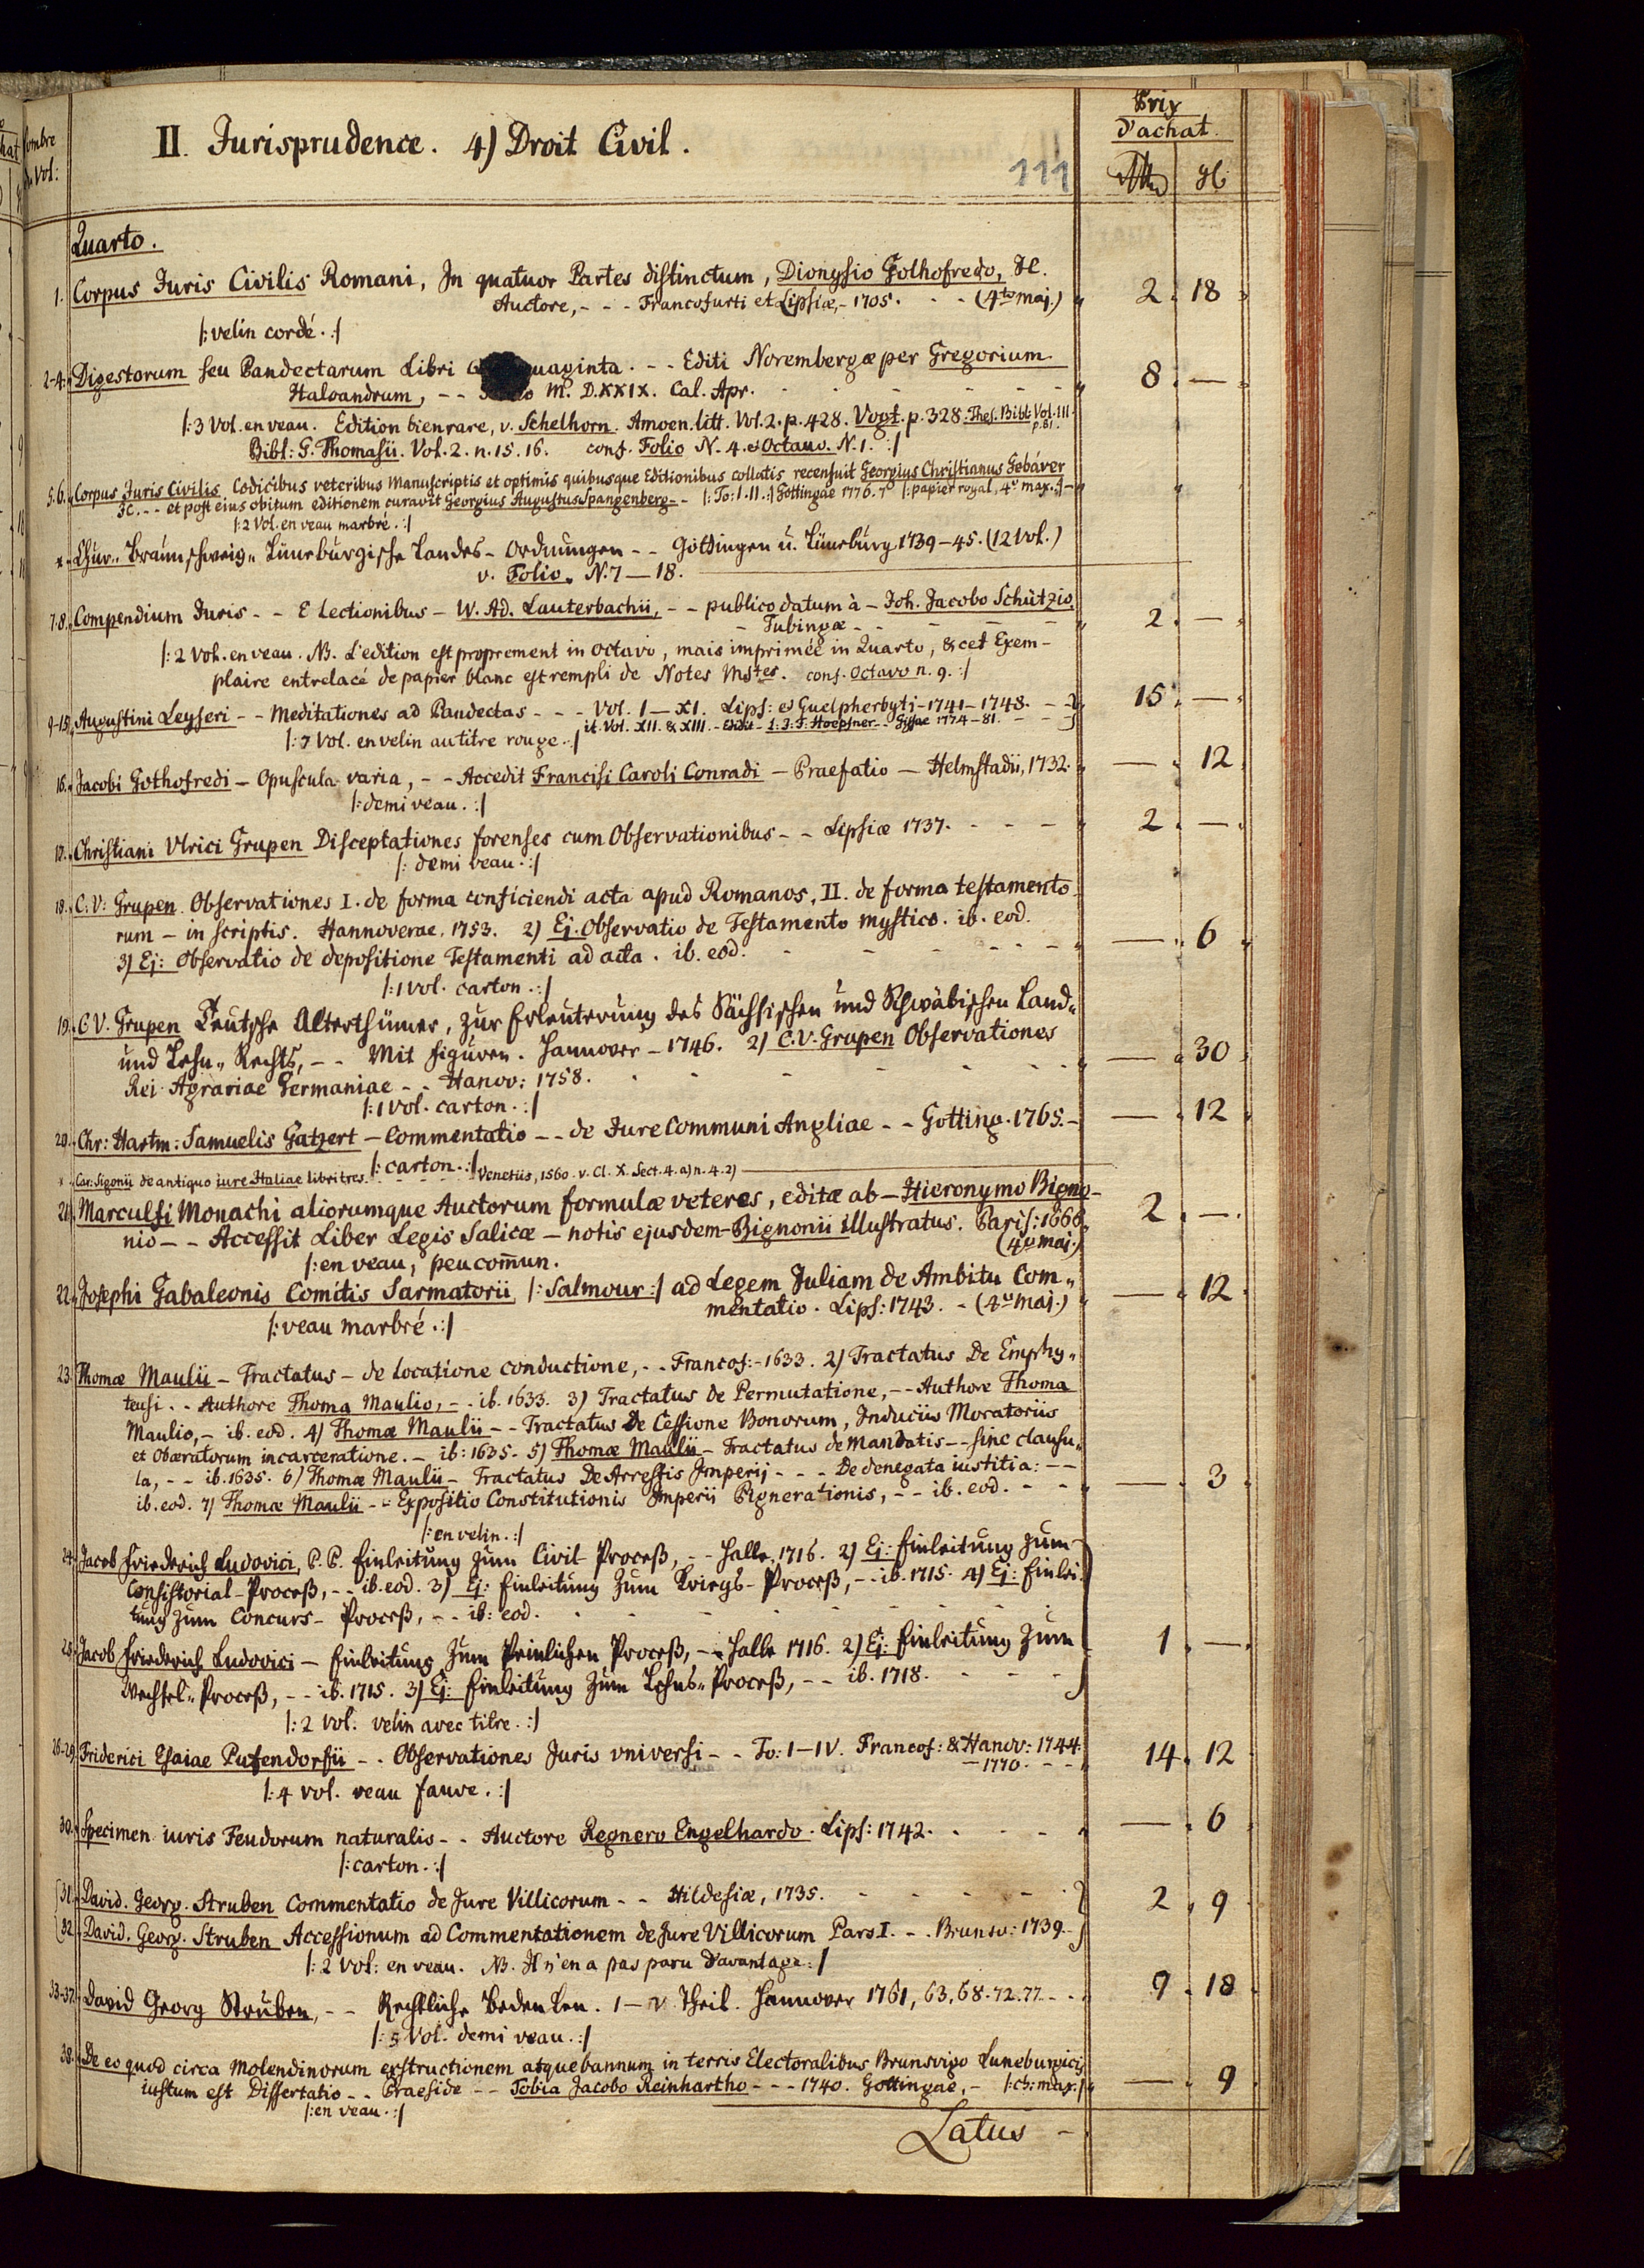 Nombre
de Vol:
II. Jurisprudence. 4) Droit Civil.
111
Prix
d'achat.
Quarto.
1. Corpus Juris Civilis Romani, In quatuor Partes distinctum, Dionysio Gothofredo, JC.
Auctore, - - - Francofurti et Lipsiæ, - 1705. - - (4to maj.) 2. 18
|: velin cordé. :|
2-4. Digestorum seu Pandectarum Libri uaginta. - - Editi Norembergæ per Gregorium
Haloandrum, - - M. D.XXIX. Cal. Apr. 8. —
|: 3 Vol. en veau. Edition bien rare, v. Schelhorn. Amoen. litt. Vol. 2. p. 428. Vogt. p. 328. Thes. Bibl: Vol. III. p. 81.
Bibl: G. Thomasii. Vol. 2. n. 15. 16. conf. Folio N. 4. & Octavo. N. 1. :|
5.6. Corpus Juris Civilis Codicibus veteribus Manuscriptis et optimis quibusque Editionibus collatis recensuit Georgius Christianus Gebáver
JC. - - et post eius obitum editionem curavit Georgius Augustus Spangenberg - - |: To: I. II. :| Gottingae 1776. |: papier royal, 4o max. :| -
|: 2 Vol. en veau marbré. :|
* Chur- Braunschweig- Lüneburgische Landes- Ordnungen - - Göttingen u. Lüneburg 1739-45. (12 Vol.)
v. Folio. N. 7 — 18.
7.8. Compendium Juris - - E Lectionibus - W. Ad. Lauterbachii, - - publico datum à - Joh. Jacobo Schützio,
- Tubingæ - - 2. —
|: 2 Vol. en veau. NB. L'edition est proprement in Octavo, mais imprimée in Quarto, & cet Exem-
plaire entrelacé de papier blanc est rempli de Notes Mstes. conf. Octavo n. 9. :|
9-15. Augustini Leyseri - - Meditationes ad Pandectas - - - Vol. I — XI. Lips: & Guelpherbyti - 1741 - 1748. - - 15. —
it. Vol. XII. & XIII. - Edidit - L. J. F. Hoepfner - - Gissae 1774 - 81. - -
|: 7 Vol. en velin au titre rouge. :|
16. Jacobi Gothofredi - Opuscula varia, - - Accedit Francisi Caroli Conradi - Praefatio - Helmstadii, 1732. — 12
|: demi veau. :|
17. Christiani Vlrici Grupen Disceptationes forenses cum Observationibus - - Lipsiæ 1737. - - - 2. —
|: demi veau. :|
18. C. V: Grupen Observationes I. de forma conficiendi acta apud Romanos, II. de forma testamento-
rum - in scriptis. Hannoverae. 1753. 2) Ej. Observatio de Testamento mystico. ib. eod.
3) Ej: Observatio de depositione Testamenti ad acta. ib. eod. — 6
|: 1 vol. carton. :|
19. C. V. Grupen Teutsche Alterthümer, zur Erleuterung des Sächsischen und Schwäbischen Land-
und Lehn- Rechts, - - Mit figuren. Hannover - 1746. 2) C. V. Grupen Observationes
Rei Agrariae Germaniae - - Hanov: 1758. — 30
|: 1 vol. carton. :|
20. Chr: Hartm: Samuelis Gatzert - Commentatio - - de Jure Communi Angliae - - Gotting. 1765. - — 12
|: carton. :|
* Car: Sigonii de antiquo iure Italiae libri tres. - - - - Venetiis, 1560. v. Cl. X. Sect. 4. a) n. 4. 2)
21. Marculfi Monachi aliorumque Auctorum formulæ veteres, editæ ab - Hieronymo Bigno-
nio - - Accessit Liber Legis Salicæ - notis ejusdem - Bignonii illustratus. Paris: 1666. 2. —
(4o maj.)
|: en veau, peu com̄un.
22. Josephi Gabaleonis Comitis Sarmatorii |: Salmour :| ad Legem Juliam de Ambitu Com-
mentatio. Lips: 1743. - (4o maj.) — 12
|: veau marbré. :|
23. Thomæ Maulii - Tractatus - de locatione conductione, - - Francof: - 1633. 2) Tractatus De Emphy-
teusi. - - Authore Thoma Maulio, - - ib. 1633. 3) Tractatus De Permutatione, - - Authore Thoma
Maulio, - ib. eod. 4) Thomæ Maulii - - Tractatus De Cessione Bonorum, Induciis Moratoriis
et Obæratorum incarceratione. - ib: 1635. 5) Thomæ Maulii - Tractatus de Mandatis - - sine clausu-
la, - - ib. 1635. 6) Thomæ Maulii - Tractatus De Arrestis Imperij - - - De denegata iustitia: - -
ib. eod. 7) Thomæ Maulii - - Expositio Constitutionis Imperii Pignerationis, - - ib. eod. - - — 3
|: en velin. :|
24. Jacob Friederich Ludovici, P. P. Einleitung zum Civil- Proceß, - - Halle, 1716. 2) Ej: Einleitung zum
Consistorial- Proceß, - - ib. eod. 3) Ej: Einleitung zum Kriegs- Proceß, - - ib. 1715. 4) Ej: Einlei-
tung zum Concurs- Proceß, - - ib: eod.
25. Jacob Friederich Ludovici - Einleitung zum Peinlichen Proceß, - - Halle 1716. 2) Ej: Einleitung zum 1. —
Wechsel- Proceß, - - ib. 1715. 3) Ej: Einleitung zum Lehns- Proceß, - - ib. 1718.
|: 2 vol. velin avec titre. :|
26-29. Friderici Esaiae Pufendorfii - - Observationes Juris vniversi - - To: I - IV. Francof: & Hanov: 1744.
- 1770. - - 14. 12
|: 4 vol. veau fauve. :|
30. Specimen iuris Feudorum naturalis - - Auctore Regnero Engelhardo. Lips: 1742. — 6
|: carton. :|
31. David. Georg. Struben Commentatio de Jure Villicorum - - Hildesiæ, 1735. 2. 9
32. David. Georg. Struben Accessionum ad Commentationem de Jure Villicorum Pars I. - - Brunsv: 1739.
|: 2 Vol: en veau. NB. Il n'en a pas paru d'avantage. :|
33-37. David Georg Struben, - - Rechtliche Bedenken. 1 - V. Theil. Hannover 1761, 63, 68. 72. 77. 9. 18
|: 5 Vol. demi veau. :|
38. De eo quod circa Molendinorum exstructionem atque bannum in terris Electoralibus Brunsvigo Luneburgicis
iustum est Dissertatio - - Praeside - - Tobia Jacobo Reinhartho - - - 1740. Gottingae, - |: ch: max. :| — 9
|: en veau. :|
Latus -